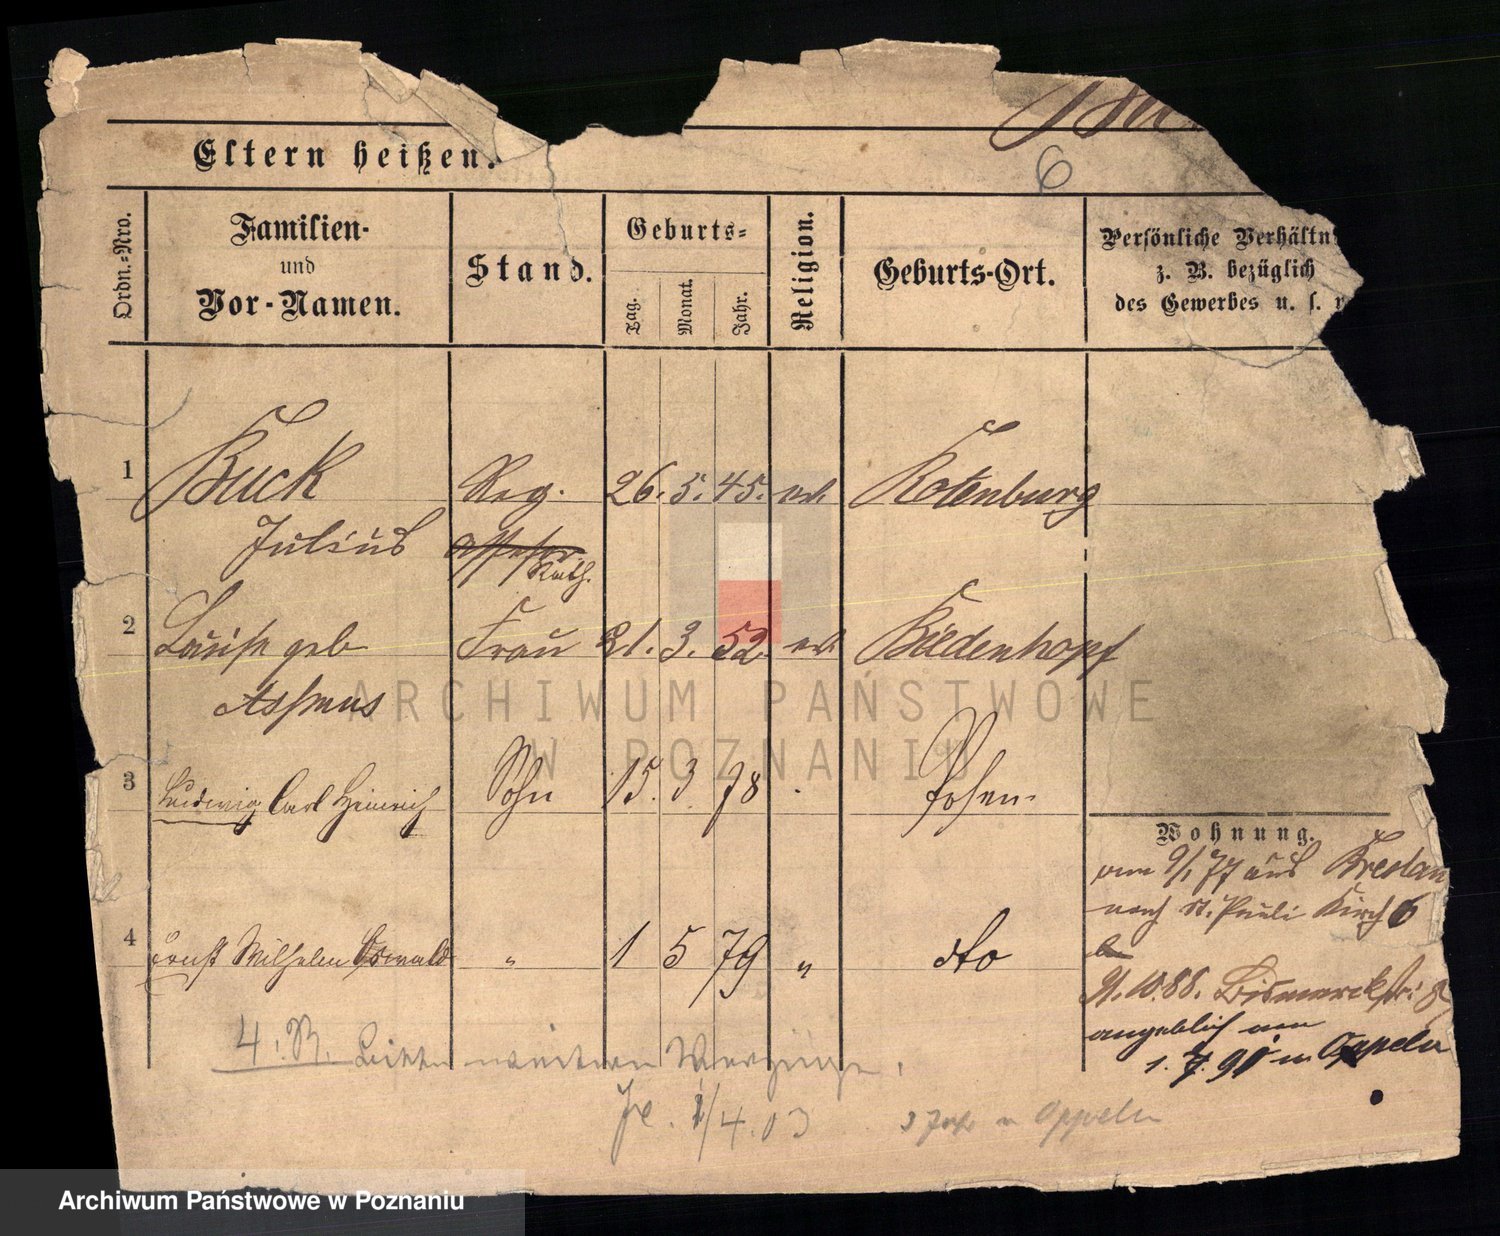 6
Eltern heißen.
Ordn.-Nro.
Familien-
und
Vor-Namen.
Stand.
Geburts-
Tag.
Monat.
Jahr.
Religion.
Geburts-Ort.
Persönliche Verhältn
z. B. bezüglich
des Gewerbes u. s. w
1 Buck Reg. 26. 5. 45. ev. Rotenburg
Julius Assessor
Rath.
2 Louise geb Frau 21. 3. 52. ev. Bildenhopf
Assmus
3 Ludwig Carl Heinrich Sohn 15. 3 78 Posen
4 Ernst Wilhelm Oswald " 1 5 79 " dto
Wohnung.
vom 9/1 77 aus Breslau
nach St. Pauli Kirch 6
21.10.88. Bismarckstr: 8
angeblich von
1. 7. 90 n Oppeln
4. R.
1/4. 03
n Oppeln
ARCHIWUM PAŃSTWOWE
W POZNANIU
Archiwum Państwowe w Poznaniu